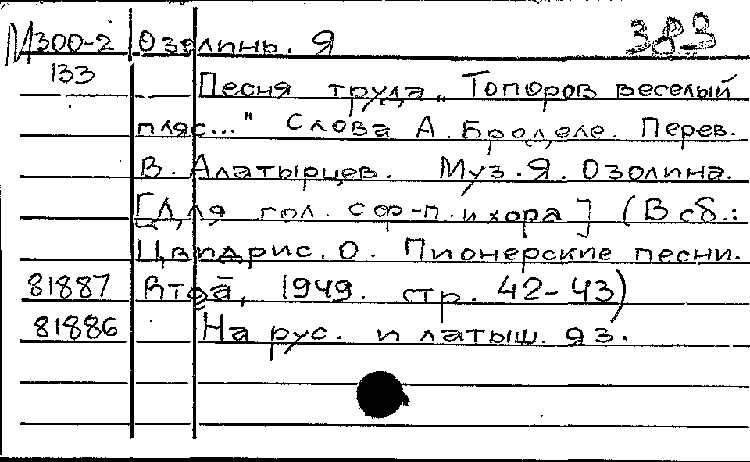 М300-2 Озолинь. Я 383
133 Песня труда „Топоров веселый
пляс..." Слова А. Броделе. Перев.
В. Алатырцев. Муз. Я. Озолина.
[Для гол. с ф-п. и хора] (В сб.:
Цвидрис. О. Пионерские песни.
81887 1949. стр. 42-43)
81886 На рус. и латыш. яз.